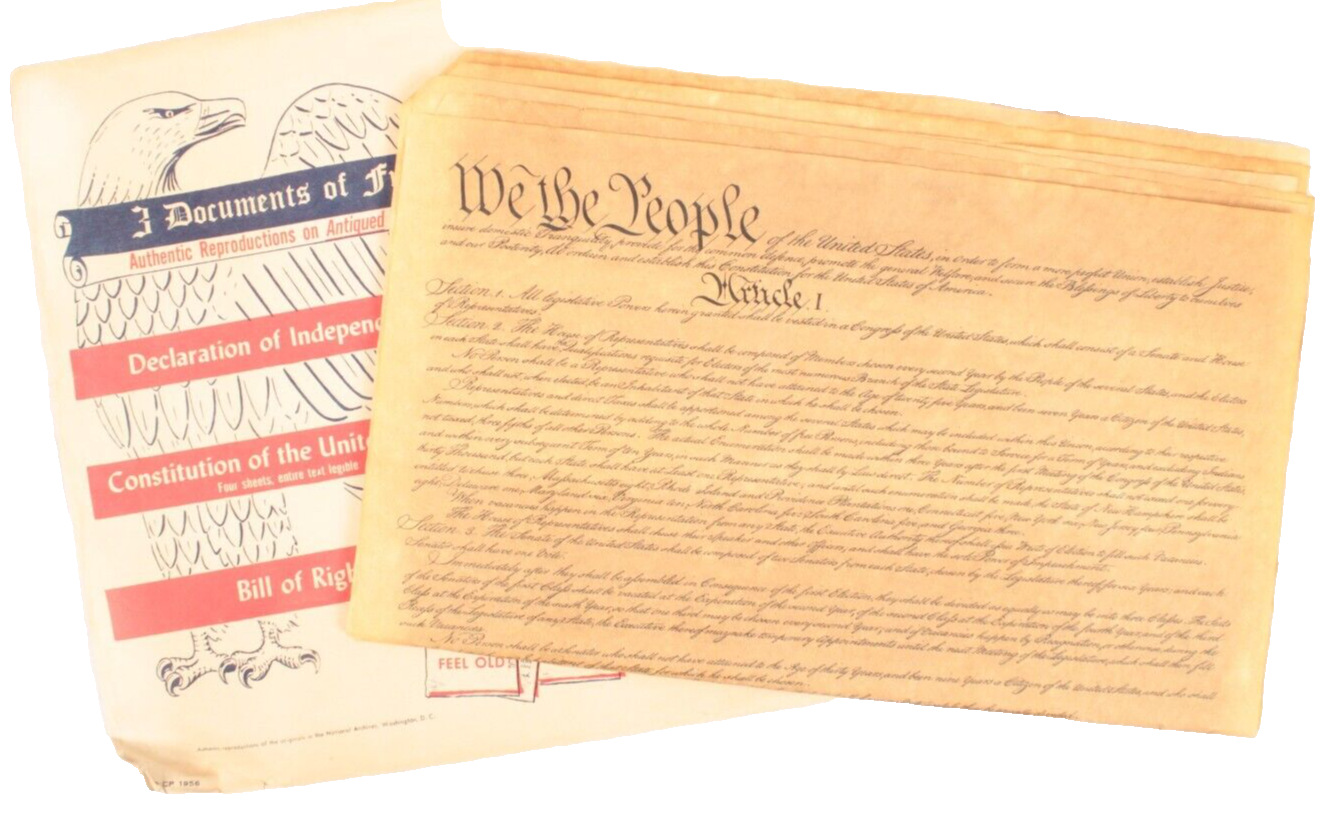 3 Documents of Fr
Authentic Reproductions on Antiqued
Declaration of Independ
Constitution of the Unite
Four sheets, entire text legible
Bill of Righ
FEEL OLD!
Authentic reproductions of the originals in the National Archives, Washington, D. C.
CP 1956
We the People of the United States, in order to form a more perfect Union, establish Justice,
insure domestic Tranquility, provide for the common defence, promote the general Welfare, and secure the Blessings of Liberty to ourselves
and our Posterity, do ordain and establish this Constitution for the United States of America.
Article. I.
Section. 1. All legislative Powers herein granted shall be vested in a Congress of the United States, which shall consist of a Senate and House
of Representatives.
Section. 2. The House of Representatives shall be composed of Members chosen every second Year by the People of the several States, and the Electors
in each State shall have Qualifications requisite for Electors of the most numerous Branch of the State Legislature.
No Person shall be a Representative who shall not have attained to the Age of twenty five Years, and been seven Years a Citizen of the United States,
and who shall not, when elected, be an Inhabitant of that State in which he shall be chosen.
Representatives and direct Taxes shall be apportioned among the several States which may be included within this Union, according to their respective
Numbers, which shall be determined by adding to the whole Number of free Persons, including those bound to Service for a Term of Years, and excluding Indians
not taxed, three fifths of all other Persons. The actual Enumeration shall be made within three Years after the first Meeting of the Congress of the United States,
and within every subsequent Term of ten Years, in such Manner as they shall by Law direct. The Number of Representatives shall not exceed one for every
thirty Thousand, but each State shall have at Least one Representative; and until such enumeration shall be made, the State of New Hampshire shall be
entitled to chuse three, Massachusetts eight, Rhode Island and Providence Plantations one, Connecticut five, New York six, New Jersey four, Pennsylvania
eight, Delaware one, Maryland six, Virginia ten, North Carolina five, South Carolina five, and Georgia three.
When vacancies happen in the Representation from any State, the Executive Authority thereof shall issue Writs of Election to fill such Vacancies.
The House of Representatives shall chuse their Speaker and other Officers; and shall have the sole Power of Impeachment.
Section. 3. The Senate of the United States shall be composed of two Senators from each State, chosen by the Legislature thereof, for six Years; and each
Senator shall have one Vote.
Immediately after they shall be assembled in Consequence of the first Election, they shall be divided as equally as may be into three Classes. The Seats
of the Senators of the first Class shall be vacated at the Expiration of the second Year, of the second Class at the Expiration of the fourth Year, and of the third
Class at the Expiration of the sixth Year, so that one third may be chosen every second Year; and if Vacancies happen by Resignation, or otherwise, during the
Recess of the Legislature of any State, the Executive thereof may make temporary Appointments until the next Meeting of the Legislature, which shall then fill
such Vacancies.
No Person shall be a Senator who shall not have attained to the Age of thirty Years, and been nine Years a Citizen of the United States, and who shall
for which he shall be chosen.